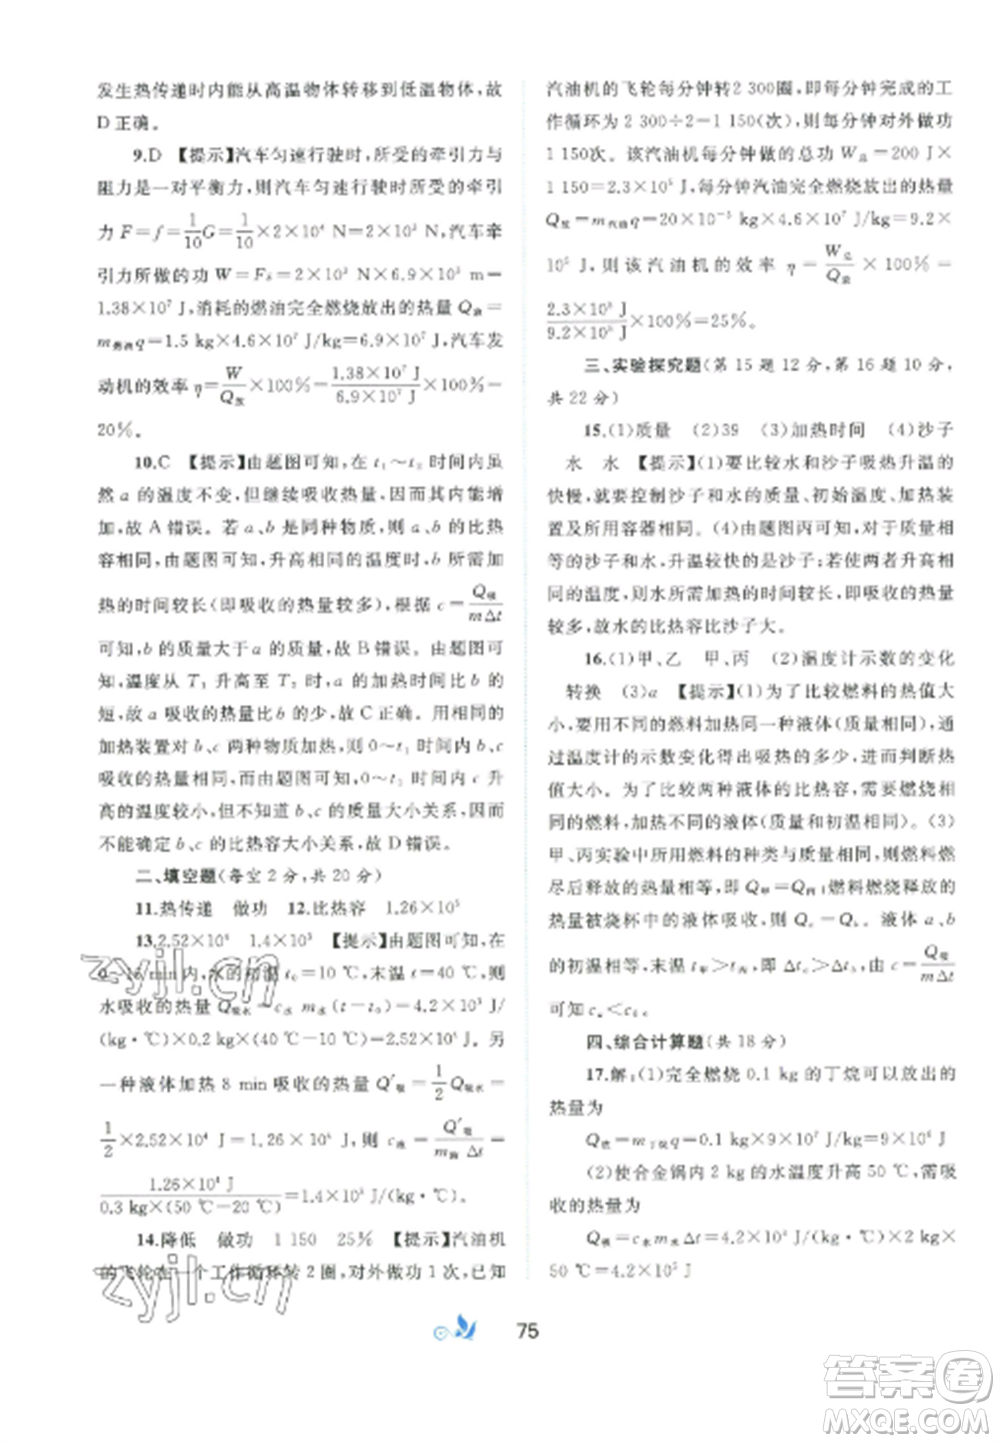 发生热传递时内能从高温物体转移到低温物体，故
D正确。
9.D 【提示】汽车匀速行驶时，所受的牵引力与
阻力是一对平衡力，则汽车匀速行驶时所受的牵引
力 F=f=1/10G=1/10×2×10⁴ N=2×10³ N，汽车牵
引力所做的功 W=Fs=2×10³ N×6.9×10³ m=
1.38×10⁷ J，消耗的燃油完全燃烧放出的热量 Q放=
m燃油q=1.5 kg×4.6×10⁷ J/kg=6.9×10⁷ J，汽车发
动机的效率 η=W/Q放×100%=1.38×10⁷ J/6.9×10⁷ J×100%=
20%。
10.C 【提示】由题图可知，在 t₁～t₂ 时间内虽
然 a 的温度不变，但继续吸收热量，其内能增
加，故 A 错误。若 a、b 是同种物质，则 a、b 的比热
容相同，由题图可知，升高相同的温度时 b 需要加
热的时间较长(即吸收的热量较多)，根据 c=Q吸/mΔt
可知，b 的质量大于 a 的质量，故 B 错误。由题图可
知，温度从 T₁ 升高至 T₂ 时，a 的加热时间比 b 的
短，故 a 吸收的热量比 b 的少，故 C 正确。用相同的
加热装置对 b、c 两种物质加热，0～t₁ 时间内 b、c
吸收的热量相同，由题图可知，0～t₁ 时间内 c 升
高的温度较小，但不知道 b、c 的质量大小关系，故
不能确定 b、c 的比热容大小关系，故 D 错误。
二、填空题(每空 2 分，共 20 分)
11.热传递 做功 12.比热容 1.26×10⁵
13.2.52×10⁴ 1.4×10³ 【提示】由题图可知，在
min 内，水的初温 t₀=10 ℃，末温 t=40 ℃，则
水吸收的热量 Q吸水=c水 m水(t-t₀)=4.2×10³ J/
(kg·℃)×0.2 kg×(40 ℃-10 ℃)=2.52×10⁴ J。另
一种液体加热 8 min 吸收的热量 Q′吸=1/2Q吸水=
1/2×2.52×10⁴ J=1.26×10⁴ J，则 c液=Q′吸/m液Δt=
1.26×10⁴ J/0.3 kg×(50 ℃-20 ℃)=1.4×10³ J/(kg·℃)。
14.降低 做功 1 150 25% 【提示】汽油机
的飞轮在一个工作循环转 2 圈，对外做功 1 次，已知
汽油机的飞轮每分钟转2 300圈，即每分钟完成的工
作循环为 2 300÷2=1 150(次)，每分钟对外做功
1 150次。该汽油机每分钟做的总功 W总=200 J×
1 150=2.3×10⁵ J，每分钟汽油完全燃烧放出的热量
Q放=m汽油q=20×10⁻³ kg×4.6×10⁷ J/kg=9.2×
10⁵ J，则该汽油机的效率 η=W总/Q放×100%=
2.3×10⁵ J/9.2×10⁵ J×100%=25%。
三、实验探究题(第 15 题 12 分，第 16 题 10 分，
共 22 分)
15.(1)质量 (2)39 (3)加热时间 (4)沙子
水 水 【提示】(1)要比较水和沙子吸热升温的
快慢，就要控制沙子和水的质量、初始温度、加热装
置及所用容器相同。(4)由题图丙可知，对于质量相
等的沙子和水，升温较快的是沙子；若使两者升高相
同的温度，则水需要加热的时间较长，吸收的热量
较多，故水的比热容比沙子大。
16.(1)甲、乙 甲、丙 (2)温度计示数的变化
转换 (3)a 【提示】(1)为了比较燃料的热值大
小，要用不同的燃料加热同一种液体(质量相同)，通
过温度计的示数变化得出吸热的多少，进而判断热
值大小。为了比较两种液体的比热容，必须用相同
的燃料，加热不同的液体(质量和初温相同)。(3)
甲、丙实验中所用燃料的种类与质量相同，则燃料燃
烧后释放的热量相等，即 Q甲=Q丙；燃料燃烧释放的
热量被烧杯中的液体吸收，故 Qₐ=Q_b。液体 a、b
的初温相同，末温 t甲>t丙，即 Δtₐ>Δt_b，由 c=Q吸/mΔt
可知 cₐ<c_b。
四、综合计算题(共 18 分)
17.解：(1)完全燃烧 0.1 kg 的丁烷可以放出的
热量为
Q放=m丁烷q=0.1 kg×9×10⁷ J/kg=9×10⁶ J
(2)使合金锅内 2 kg 的水温度升高 50 ℃，需吸
收的热量为
Q吸=c水m水Δt=4.2×10³ J/(kg·℃)×2 kg×
50 ℃=4.2×10⁵ J
75
zyjl.cn
zyjl.cn
答案圈
MXQE.COM